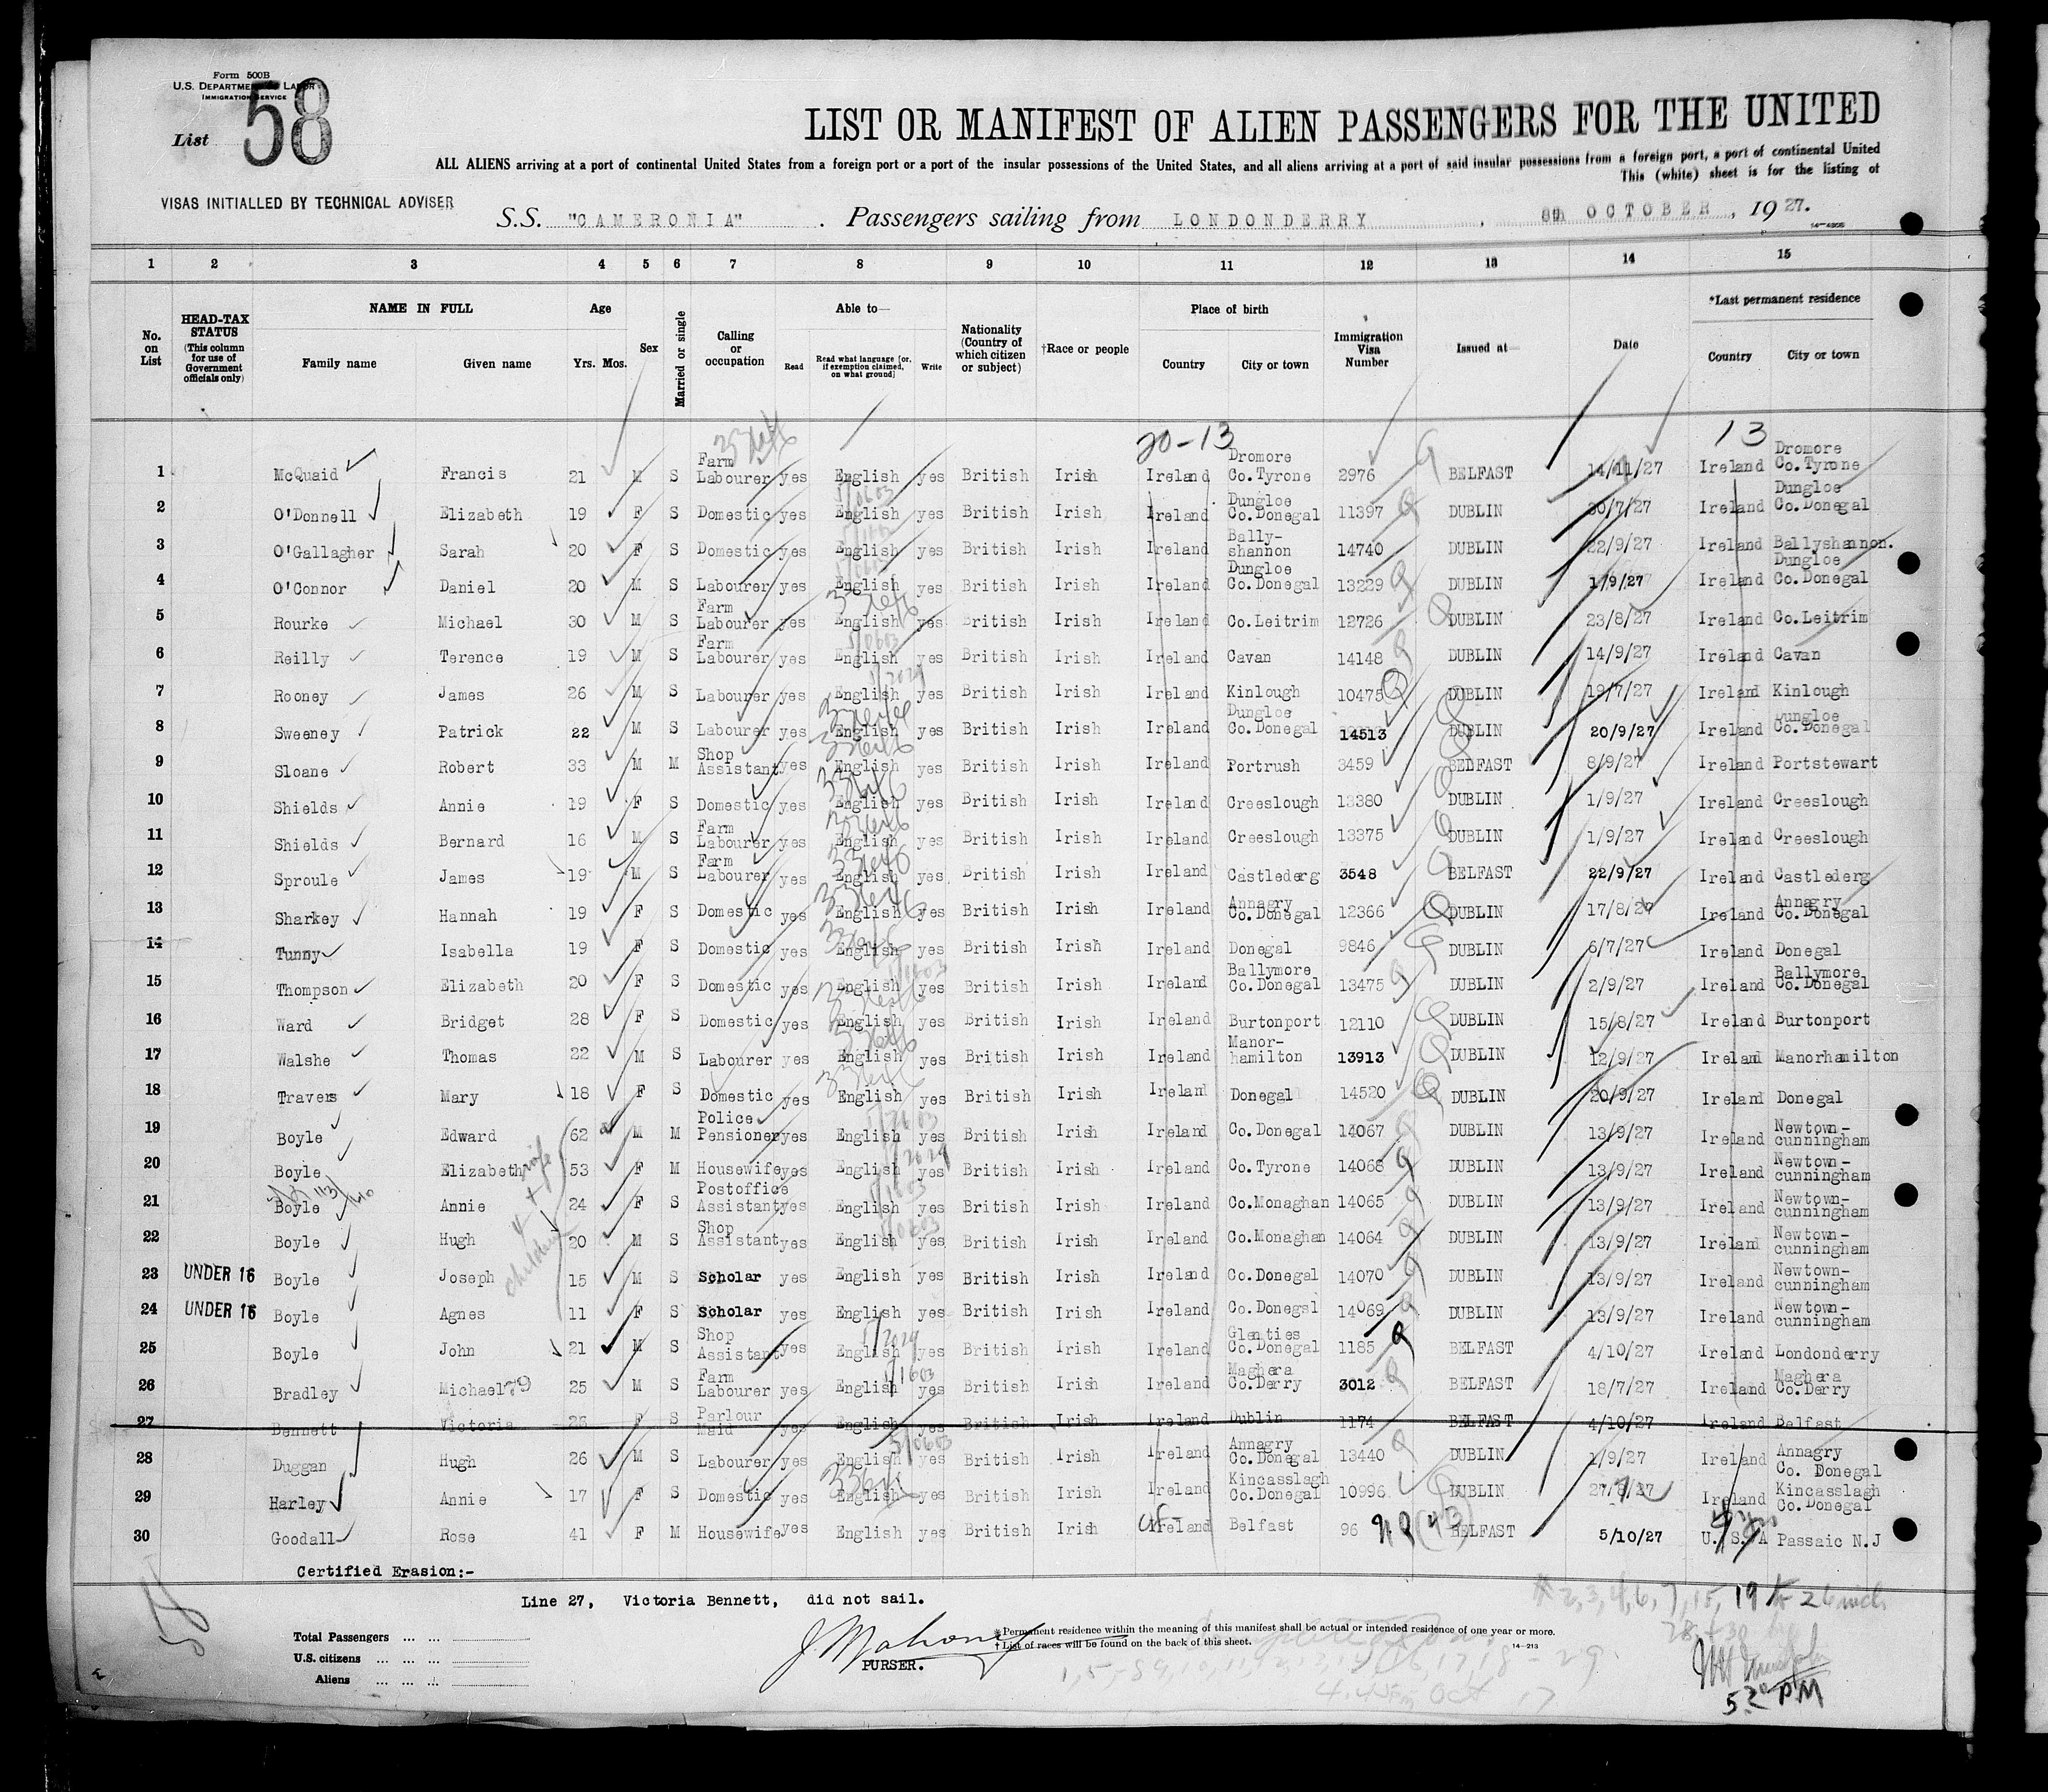 Form 500B
U.S. DEPARTMENT OF LABOR
IMMIGRATION SERVICE
List 58
LIST OR MANIFEST OF ALIEN PASSENGERS FOR THE UNITED
ALL ALIENS arriving at a port of continental United States from a foreign port or a port of the insular possessions of the United States, and all aliens arriving at a port of said insular possessions from a foreign port, a port of continental United
This (white) sheet is for the listing of
VISAS INITIALLED BY TECHNICAL ADVISER
S.S. "CAMERONIA". Passengers sailing from LONDONDERRY, 8th OCTOBER, 1927.
14—4208
1 2 3 4 5 6 7 8 9 10 11 12 13 14 15
No. on List
HEAD-TAX STATUS (This column for use of Government officials only)
NAME IN FULL Family name Given name
Age Yrs. Mos.
Sex
Married or single
Calling or occupation
Able to— Read Read what language [or, if exemption claimed, on what ground] Write
Nationality (Country of which citizen or subject)
†Race or people
Place of birth Country City or town
Immigration Visa Number
Issued at
Date
*Last permanent residence Country City or town
20-13 13
1 McQuaid Francis 21 M S Farm Labourer yes English yes British Irish Ireland Dromore Co.Tyrone 2976 BELFAST 14/11/27 Ireland Dromore Co.Tyrone
2 O'Donnell Elizabeth 19 F S Domestic yes English yes British Irish Ireland Dungloe Co.Donegal 11397 DUBLIN 30/7/27 Ireland Dungloe Co.Donegal
3 O'Gallagher Sarah 20 F S Domestic yes English yes British Irish Ireland Bally-shannon 14740 DUBLIN 22/9/27 Ireland Ballyshannon.
4 O'Connor Daniel 20 M S Labourer yes English yes British Irish Ireland Dungloe Co.Donegal 13229 DUBLIN 1/9/27 Ireland Dungloe Co.Donegal
5 Rourke Michael 30 M S Farm Labourer yes English yes British Irish Ireland Co.Leitrim 12726 DUBLIN 23/8/27 Ireland Co.Leitrim
6 Reilly Terence 19 M S Farm Labourer yes English yes British Irish Ireland Cavan 14148 DUBLIN 14/9/27 Ireland Cavan
7 Rooney James 26 M S Labourer yes English yes British Irish Ireland Kinlough 10475 DUBLIN 19/7/27 Ireland Kinlough
8 Sweeney Patrick 22 M S Labourer yes English yes British Irish Ireland Dungloe Co.Donegal 14513 DUBLIN 20/9/27 Ireland Dungloe Co.Donegal
9 Sloane Robert 33 M M Shop Assistant yes English yes British Irish Ireland Portrush 3459 BELFAST 8/9/27 Ireland Portstewart
10 Shields Annie 19 F S Domestic yes English yes British Irish Ireland Creeslough 13380 DUBLIN 1/9/27 Ireland Creeslough
11 Shields Bernard 16 M S Farm Labourer yes English yes British Irish Ireland Creeslough 13375 DUBLIN 1/9/27 Ireland Creeslough
12 Sproule James 19 M S Farm Labourer yes English yes British Irish Ireland Castlederg 3548 BELFAST 22/9/27 Ireland Castlederg
13 Sharkey Hannah 19 F S Domestic yes English yes British Irish Ireland Annagry Co.Donegal 12366 DUBLIN 17/8/27 Ireland Annagry Co.Donegal
14 Tunny Isabella 19 F S Domestic yes English yes British Irish Ireland Donegal 9846 DUBLIN 6/7/27 Ireland Donegal
15 Thompson Elizabeth 20 F S Domestic yes English yes British Irish Ireland Ballymore Co.Donegal 13475 DUBLIN 2/9/27 Ireland Ballymore Co.Donegal
16 Ward Bridget 28 F S Domestic yes English yes British Irish Ireland Burtonport 12110 DUBLIN 15/8/27 Ireland Burtonport
17 Walshe Thomas 22 M S Labourer yes English yes British Irish Ireland Manor-hamilton 13913 DUBLIN 12/9/27 Ireland Manorhamilton
18 Travers Mary 18 F S Domestic yes English yes British Irish Ireland Donegal 14520 DUBLIN 20/9/27 Ireland Donegal
19 Boyle Edward 62 M M Police Pensioner yes English yes British Irish Ireland Co.Donegal 14067 DUBLIN 13/9/27 Ireland Newtown-cunningham
20 Boyle Elizabeth wife 53 F M Housewife yes English yes British Irish Ireland Co.Tyrone 14068 DUBLIN 13/9/27 Ireland Newtown-cunningham
21 Boyle Annie + 24 F S Postoffice Assistant yes English yes British Irish Ireland Co.Monaghan 14065 DUBLIN 13/9/27 Ireland Newtown-cunningham
22 Boyle Hugh 4 children 20 M S Shop Assistant yes English yes British Irish Ireland Co.Monaghan 14064 DUBLIN 13/9/27 Ireland Newtown-cunningham
23 UNDER 16 Boyle Joseph 15 M S Scholar yes English yes British Irish Ireland Co.Donegal 14070 DUBLIN 13/9/27 Ireland Newtown-cunningham
24 UNDER 16 Boyle Agnes 11 F S Scholar yes English yes British Irish Ireland Co.Donegal 14069 DUBLIN 13/9/27 Ireland Newtown-cunningham
25 Boyle John 21 M S Shop Assistant yes English yes British Irish Ireland Glenties Co.Donegal 1185 BELFAST 4/10/27 Ireland Londonderry
26 Bradley Michael 25 M S Farm Labourer yes English yes British Irish Ireland Maghera Co.Derry 3012 BELFAST 18/7/27 Ireland Maghera Co.Derry
27 Bennett Victoria 26 F S Parlour Maid yes English yes British Irish Ireland Dublin 1174 BELFAST 4/10/27 Ireland Belfast
28 Duggan Hugh 26 M S Labourer yes English yes British Irish Ireland Annagry Co.Donegal 13440 DUBLIN 1/9/27 Ireland Annagry Co. Donegal
29 Harley Annie 17 F S Domestic yes English yes British Irish Ireland Kincasslagh Co.Donegal 10996 DUBLIN 27/7/27 Ireland Kincasslagh Co.Donegal
30 Goodall Rose 41 F M Housewife yes English yes British Irish Ireland Belfast 96 BELFAST 5/10/27 U.S.A Passaic N.J
Certified Erasion:-
Line 27, Victoria Bennett, did not sail.
58
Total Passengers ... ...
U.S. citizens ... ... ...
Aliens ... ... ...
J Mahoney
PURSER.
*Permanent residence within the meaning of this manifest shall be actual or intended residence of one year or more.
†List of races will be found on the back of this sheet.
14—213
# 2, 3, 4, 6, 7, 15, 19 to 26 incl
28 + 30
4.45 PM Oct 17
52 PM